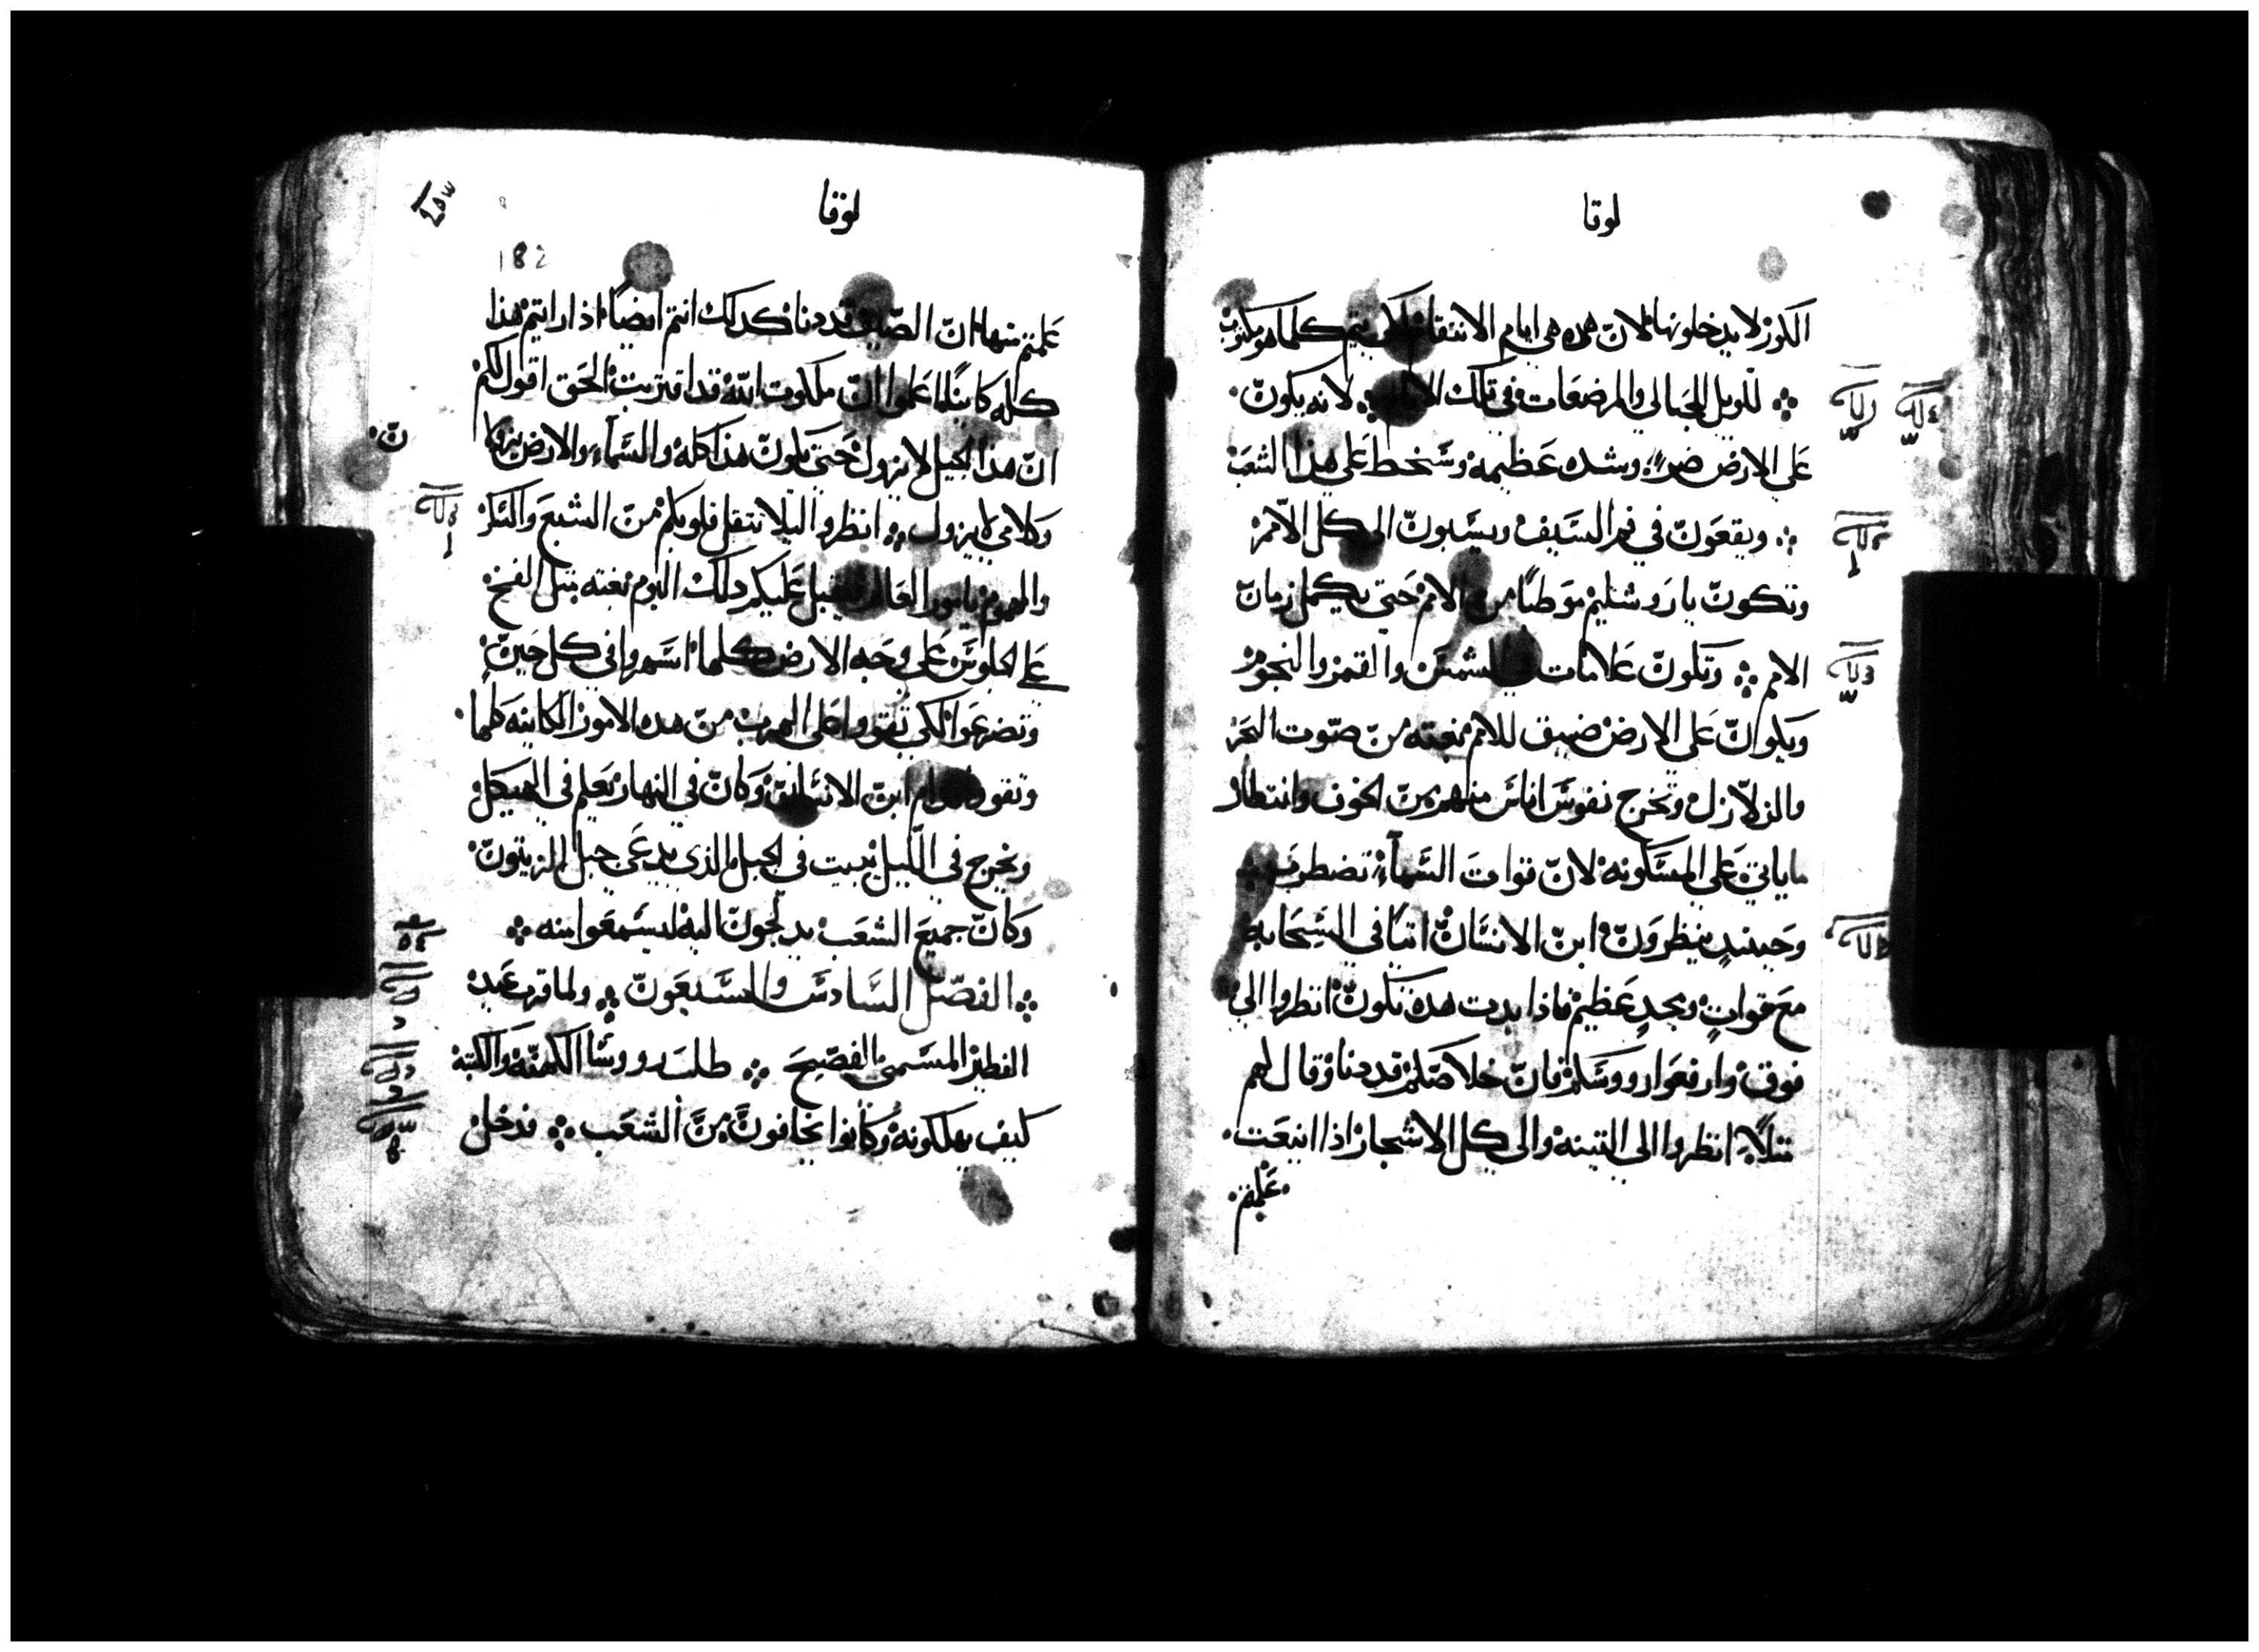 لوقا
الكور لا يدخلونها لان هده هي ايام الانتقام لكي يتم كلما هو مكتوب
الويل للحبالي والمرضعات في تلك الايام لانه يكون
على الارض ضر وشده عظيمه وسخط على هذا الشعب
ويقعون في فم السيف ويسبون الى كل الامم
وتكون يارشليم موطيا من الامم حتى يكمل زمان
الامم وتكون علامات في الشمس والقمر والنجوم
ويكون على الارض ضيق للامم بغته من صوت البحر
والزلازل وتخرج نفوس اناس منهم من الخوف وانتظار
ما ياتي على المسكونه لان قوات السماء تضطرب
وحينيد ينظرون ابن الانسان اتيا في السحابه
مع قوات ومجد عظيم فاذا بدت هده تكون انظروا الى
فوق وارفعوا رووسكم فان خلاصكم قد دنا وقال لهم
مثلا انظروا الى التينه والى كل الاشجار اذا اينعت
علمتم
لوقا
182
علمتم منها ان الصيف قد دنا كدلك انتم ايضا اذا رايتم هذا
كله كاينا اعلموا ان ملكوت الله قد اقتربت الحق اقول لكم
ان هذا الجيل لا يزول حتى يكون هذا كله والسماء والارض يزولا
وكلامي لا يزول انظروا ليلا تثقل قلوبكم من الشبع والسكر
والهموم بامور العالم فيقبل عليكم دلك اليوم بغته مثل الفخ
على الجلوس على وجه الارض كلها اسهروا في كل حين
وتضرعوا لكي تقووا على الهرب من هده الامور الكاينه كلها
وتقوا قدام ابن الانسان وكان في النهار يعلم في الهيكل
ويخرج في الليل يبيت في الجبل الذي يدعى جبل الزيتون
وكان جميع الشعب يدلجون اليه ليسمعوا منه
الفصل السادس والسبعون ولما قرب عيد
الفطير المسمى الفصيح طلب رووسا الكهنه والكتبه
كيف يهلكونه وكانوا يخافون من الشعب فدخل